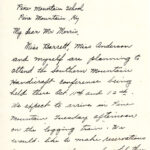 Pine Mountain School
Pine Mountain, Ky
My dear Mr Morris,
Miss Barrett, Miss Anderson
and myself are planning to
attend the Southern Mountain
Handicraft Conference being
held there Oct 14 and 15th.
We expect to arrive in Pine
Mountain Tuesday afternoon
on the logging train. We
would like to make reservations